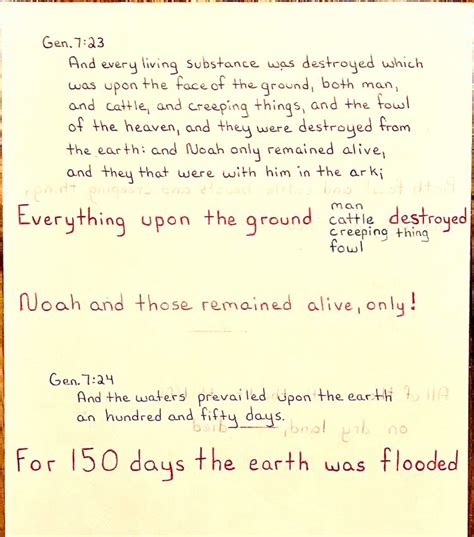 Gen. 7:23
And every living substance was destroyed which
was upon the face of the ground, both man,
and cattle, and creeping things, and the fowl
of the heaven, and they were destroyed from
the earth: and Noah only remained alive,
and they that were with him in the ark;
Everything upon the ground man cattle creeping thing fowl destroyed
Noah and those remained alive, only!
Gen. 7:24
And the waters prevailed upon the earth
an hundred and fifty days.
For 150 days the earth was flooded